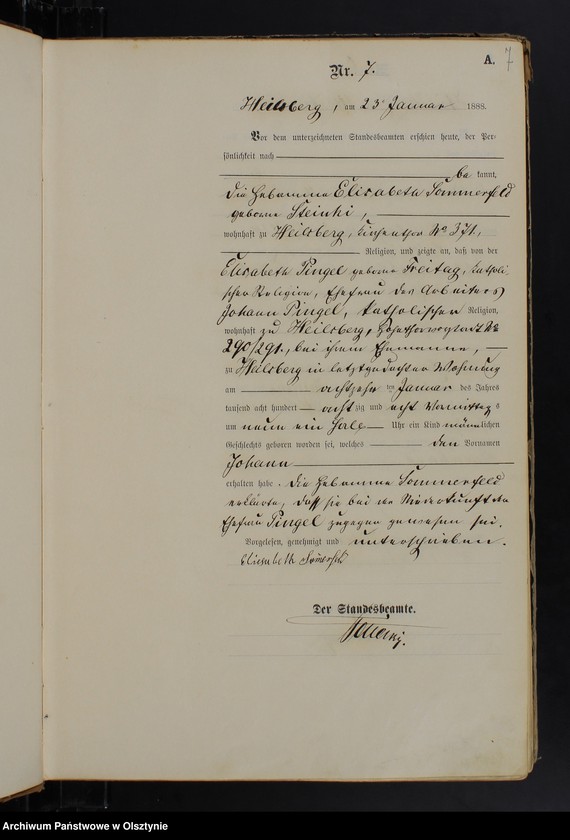 A. 7
Nr. 7.
Heilsberg, am 23 Januar 1888.
Vor dem unterzeichneten Standesbeamten erschien heute, der Per-
sönlichkeit nach
be kannt,
die Hebamme Elisabeth Sommerfeld
geborne Steinki,
wohnhaft zu Heilsberg, Kirchenthor No 371,
Religion, und zeigte an, daß von der
Elisabeth Pingel geborne Freitag, katholi-
scher Religion, Ehefrau des Arbeiters
Johann Pingel, katholischer Religion,
wohnhaft zu Heilsberg, No
290/291., bei ihrem Ehemanne,
zu Heilsberg in letztgedachter Wohnung
am achtzehn ten Januar des Jahres
tausend acht hundert acht zig und acht Vormittags
um neun ein halb Uhr ein Kind männlichen
Geschlechts geboren worden sei, welches den Vornamen
Johann
erhalten habe. Die Hebamme Sommerfeld
erklärte, daß sie bei der Niederkunft der
Ehefrau Pingel zugegen gewesen sei.
Vorgelesen, genehmigt und unterschrieben.
Elisabeth
Der Standesbeamte.
Archiwum Państwowe w Olsztynie